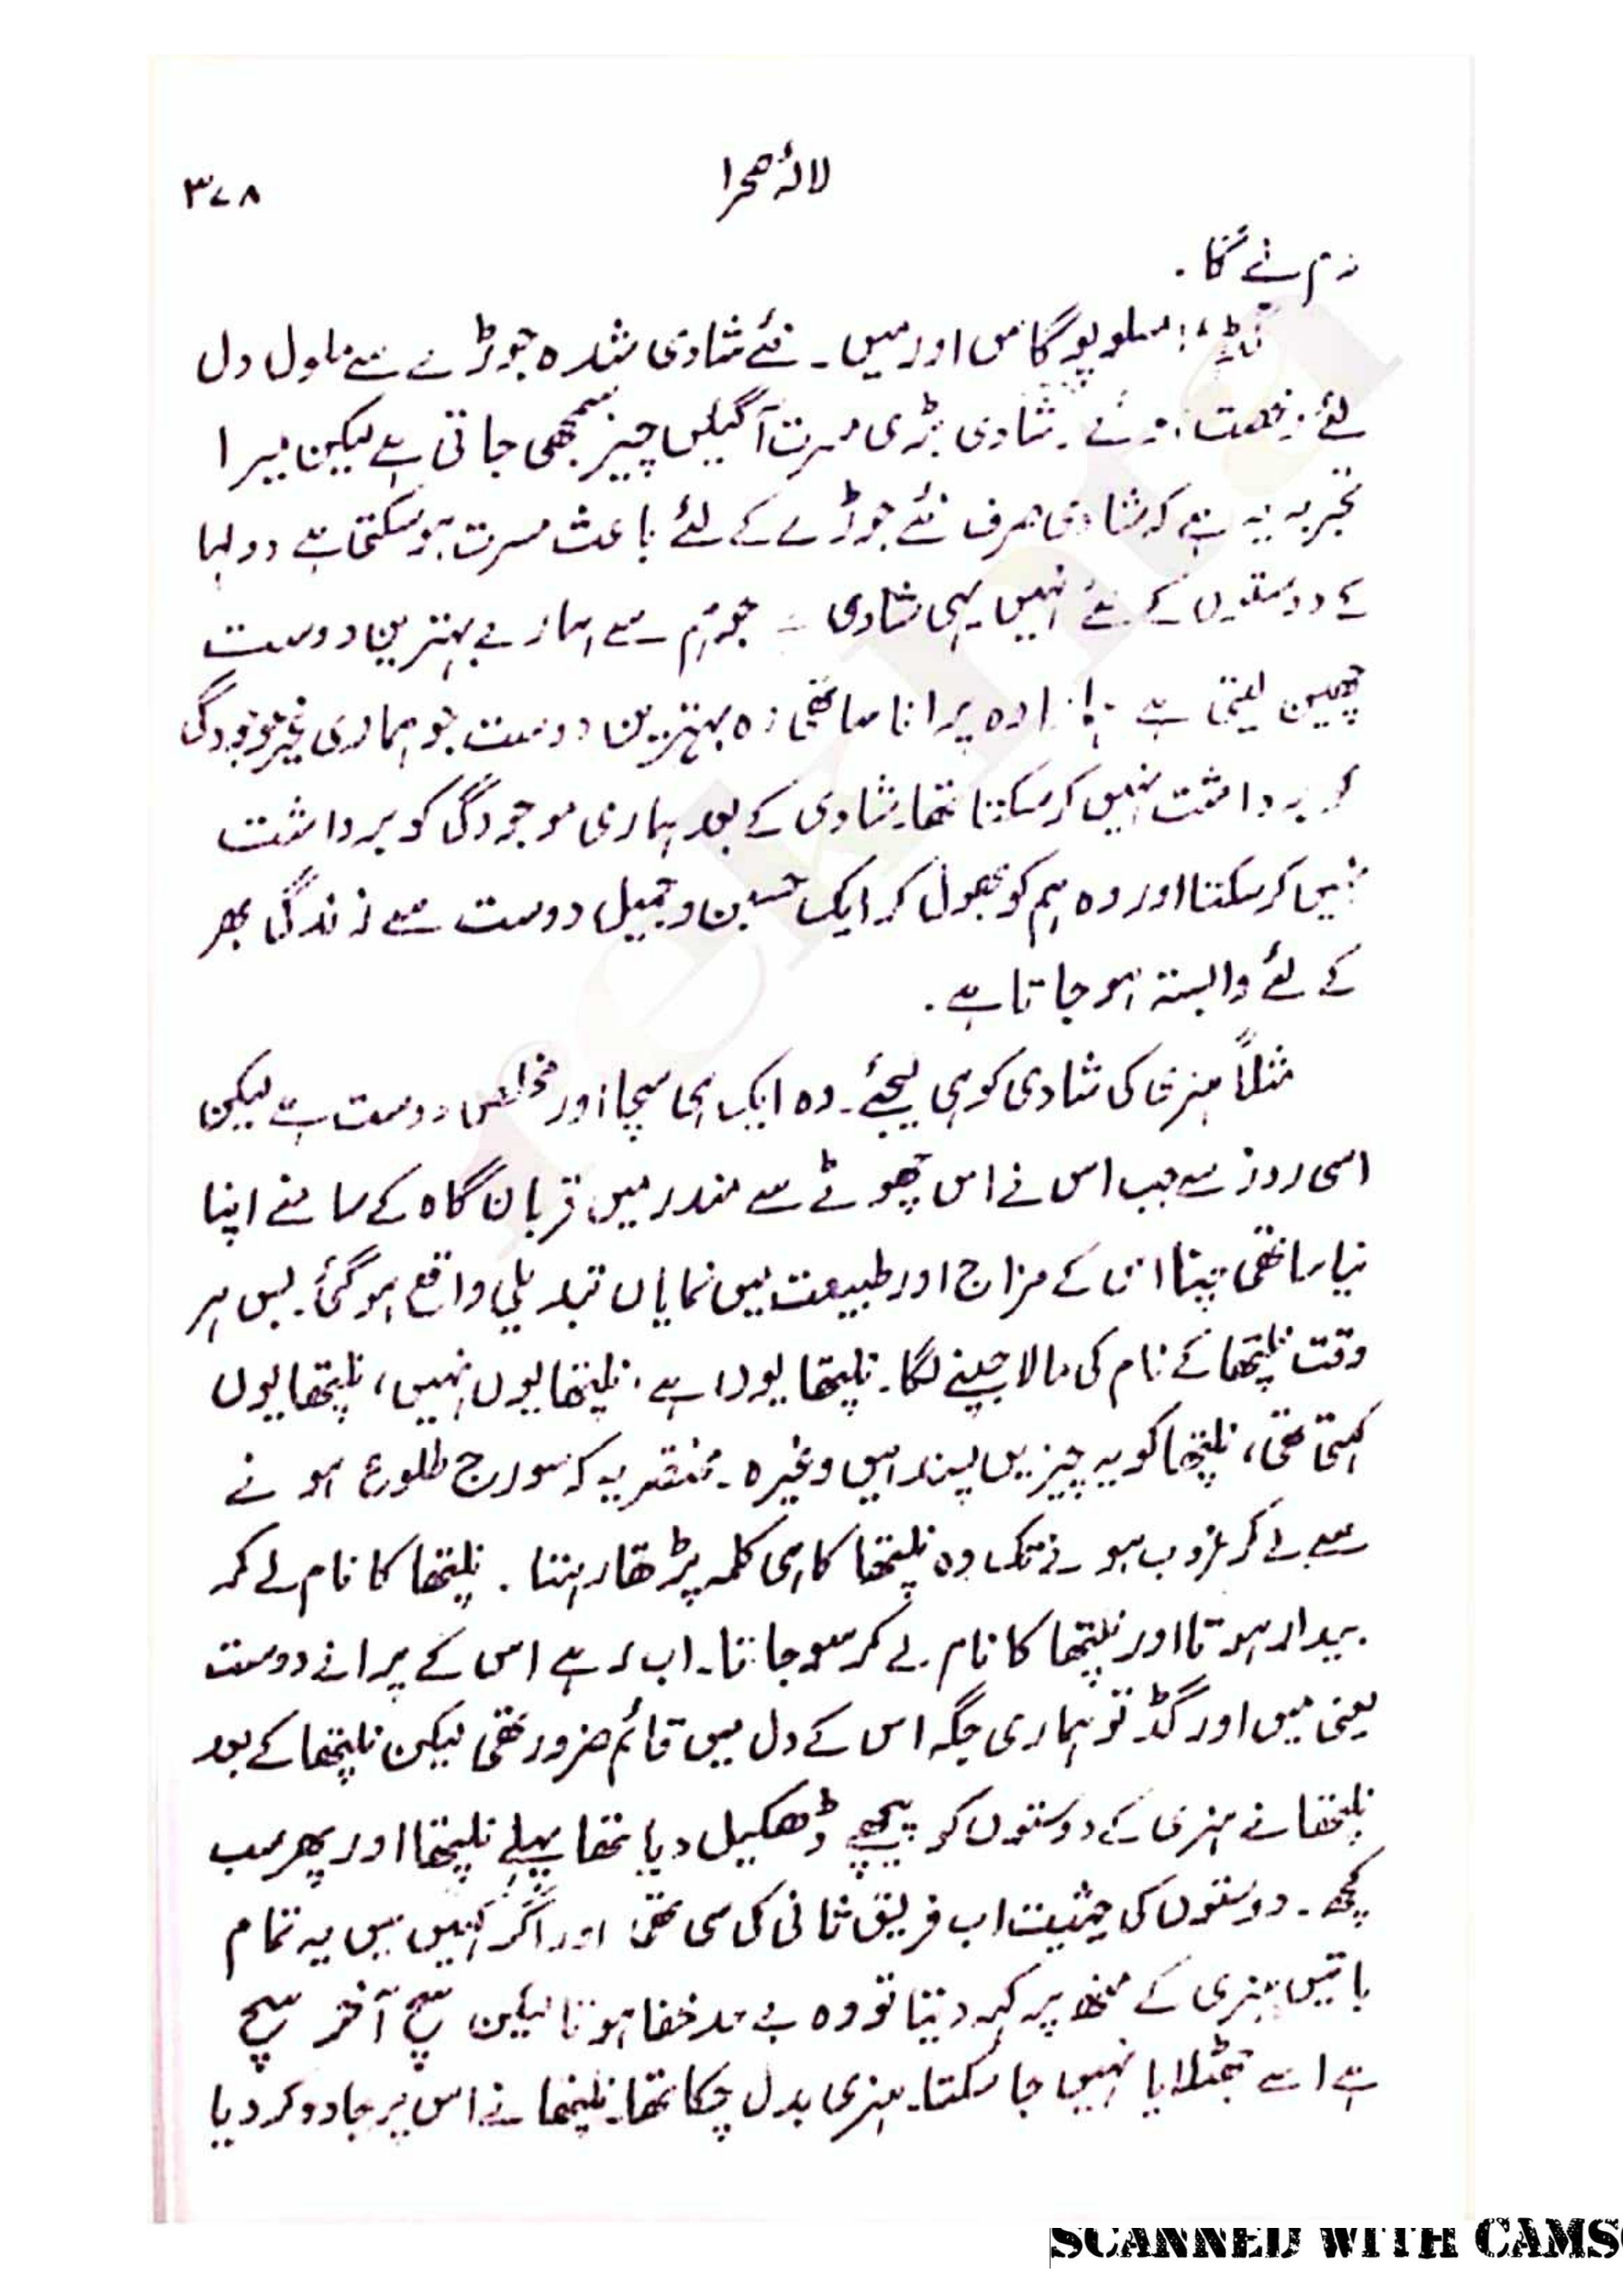 لالۂ صحرا ۳۷۸
گڈ، سلوپوگاس اور میں۔ نئے شادی شدہ جوڑے سے ملول دل
لئے رخصت ہوئے۔ شادی بڑی مسرت آگیں چیز سمجھی جاتی ہے لیکن میرا
تجربہ یہ ہے کہ شادی صرف نئے جوڑے کے لئے باعث مسرت ہو سکتی ہے دولہا
کے دوستوں کے لئے نہیں یہی شادی ہے جو ہم سے ہمارے بہترین دوست
چھین لیتی ہے ہمارا وہ پرانا ساتھی وہ بہترین دوست جو ہماری غیر موجودگی
کو برداشت نہیں کر سکتا تھا۔ شادی کے بعد ہماری موجودگی کو برداشت
نہیں کر سکتا اور وہ ہم کو بھول کر ایک حسین و جمیل دوست سے زندگی بھر
کے لئے وابستہ ہو جاتا ہے۔
مثلاً ہنری کی شادی کو ہی لیجئے۔ وہ ایک ہی سچا اور مخلص دوست ہے لیکن
اسی روز سے جب اس نے اس چھوٹے سے مندر میں قربان گاہ کے سامنے اپنا
نیا ساتھی چنا اس کے مزاج اور طبیعت میں نمایاں تبدیلی واقع ہو گئی۔ بس ہر
وقت نلیپتھا کے نام کی مالا جپنے لگا۔ نلیپتھا یوں ہے، نلیپتھا یوں نہیں، نلیپتھا یوں
کہتی تھی، نلیپتھا کو یہ چیزیں پسند ہیں وغیرہ۔ مختصر یہ کہ سورج طلوع ہونے
سے لے کر غروب ہونے تک وہ نلیپتھا کا ہی کلمہ پڑھتا رہتا۔ نلیپتھا کا نام لے کر
بیدار ہوتا اور نلیپتھا کا نام لے کر سو جاتا۔ اب رہے اس کے پرانے دوست
یعنی میں اور گڈ تو ہماری جگہ اس کے دل میں قائم ضرور تھی لیکن نلیپتھا کے بعد
نلیپتھا نے ہنری کے دوستوں کو پیچھے ڈھکیل دیا تھا پہلے نلیپتھا اور پھر سب
کچھ۔ دوستوں کی حیثیت اب فریق ثانی کی سی تھی اور اگر کہیں میں یہ تمام
باتیں ہنری کے منھ پر کہہ دیتا تو وہ بے حد خفا ہوتا لیکن سچ آخر سچ
ہے اسے جھٹلایا نہیں جا سکتا۔ ہنری بدل چکا تھا۔ نلیپتھا نے اس پر جادو کر دیا
SCANNED WITH CAMS